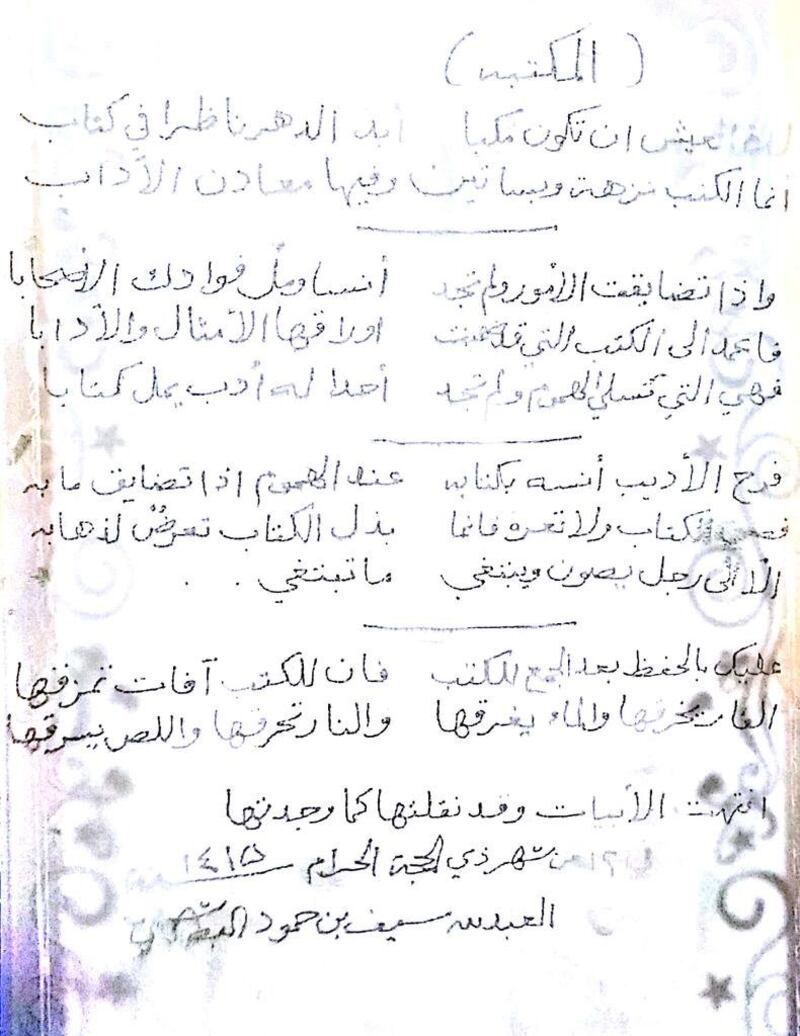 ( المكتبه )
العيش ان تكون مكبا أبد الدهر ناظرا في كتاب
انما الكتب نزهة وبساتين وفيها معادن الآداب
واذا تضايقت الأمور ولم تجد أنسا ومل فوادك الأصحابا
فاعمد الى الكتب التي قد ضمنت اوراقها الأمثال والآدابا
فهي التي تسلي الهموم ولم تجد أحدا له أدب يمل كتابا
فرح الأديب أنسه بكتابه عند الهموم اذا تضايق ما به
الكتاب ولا تعره فانما بذل الكتاب تعرضٌ لذهابه
الا الى رجل يصون ويبتغي ما تبتغي . .
عليك بالحفظ بعد الجمع للكتب فان للكتب آفات تمزقها
الفار يخرقها والماء يغرقها والنار تحرقها واللص يسرقها
انتهت الأبيات وقد نقلتها كما وجدتها
في ١٢ من شهر ذي الحجة الحرام ١٤١٥
العبد لله سيف بن حمود